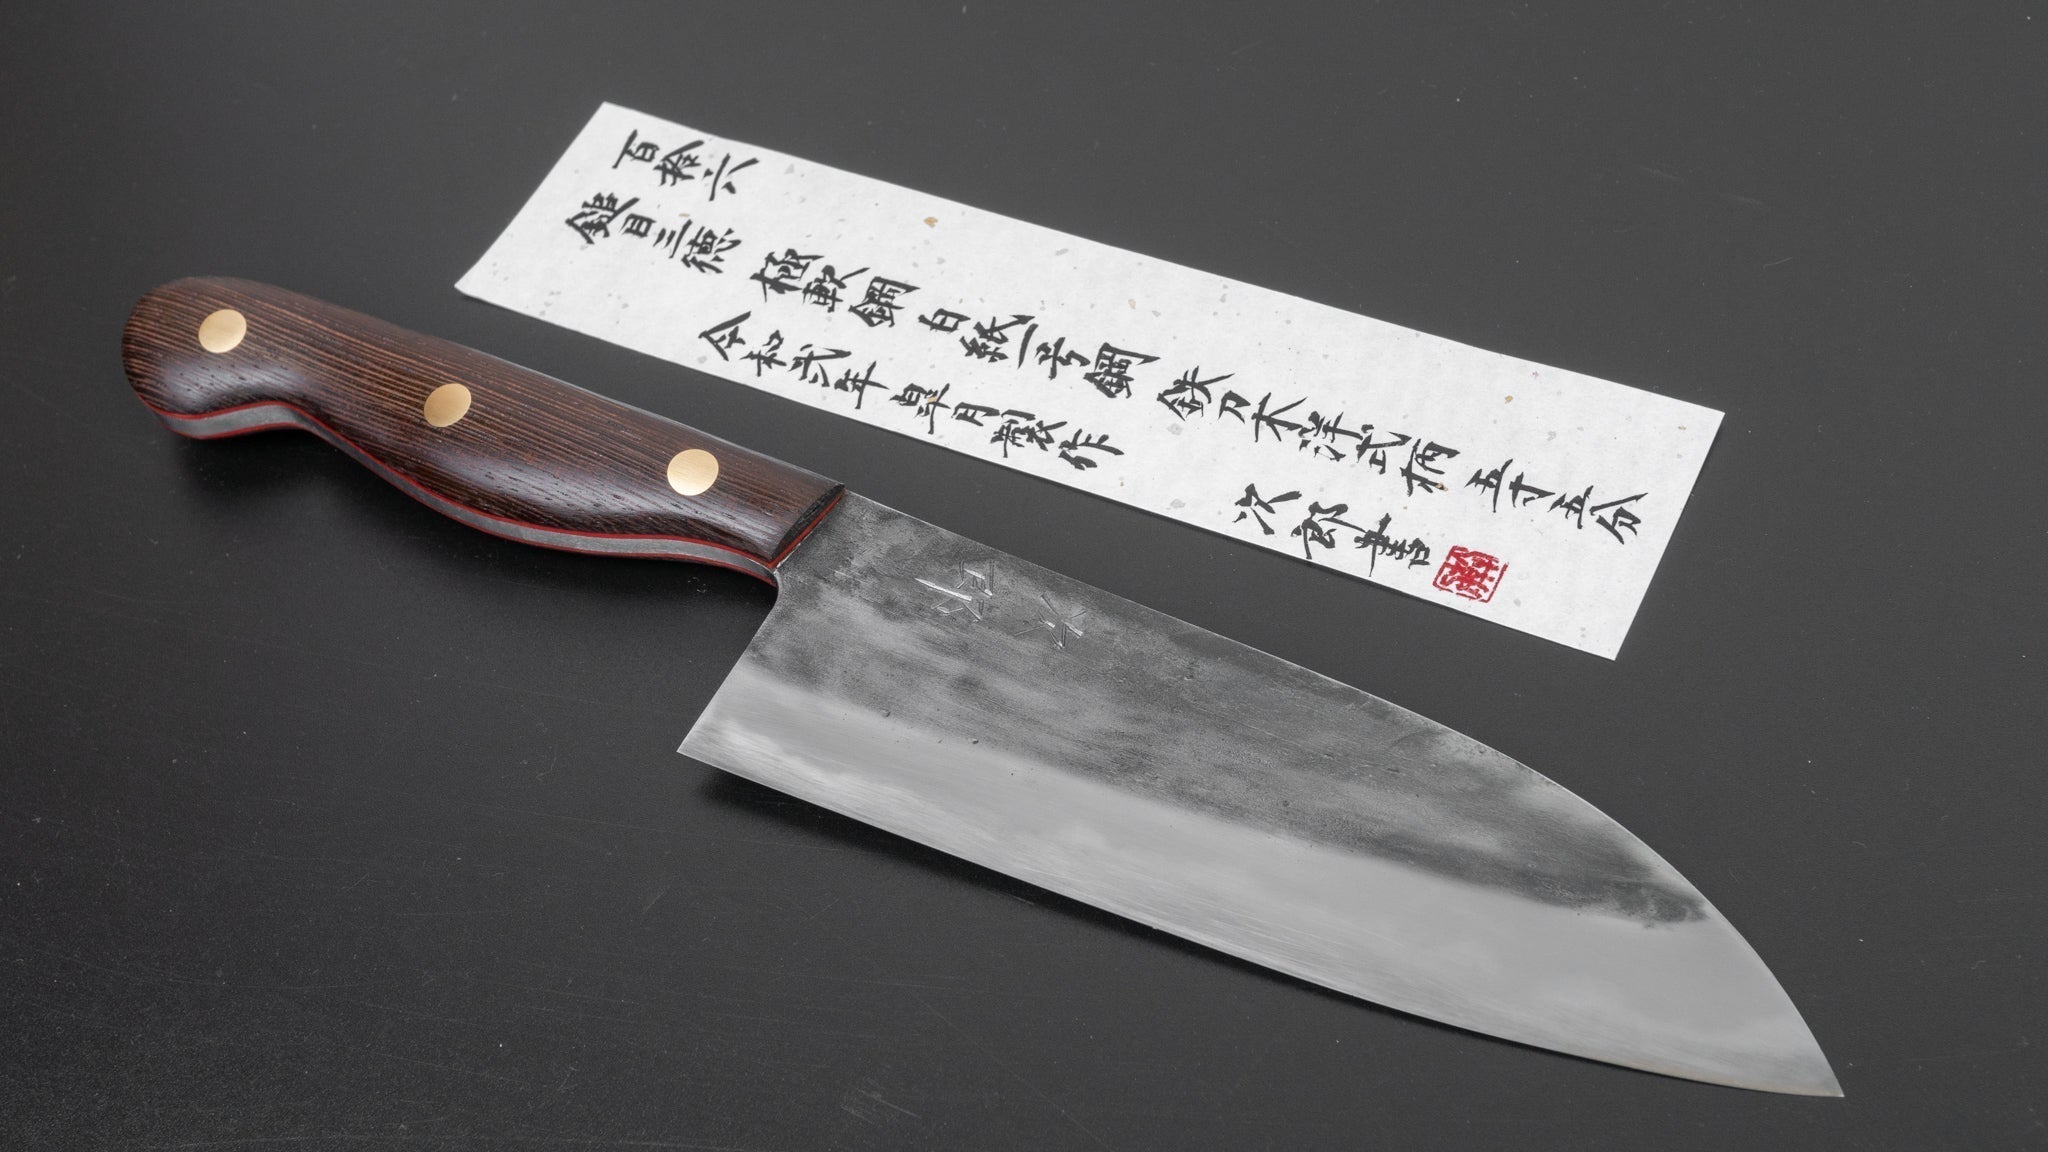 百拾六
鎚目三徳 極軟鋼 白紙一号鋼 鉄刀木洋式柄 五寸五分
令和弐年 皐月製作
次郎書
次郎